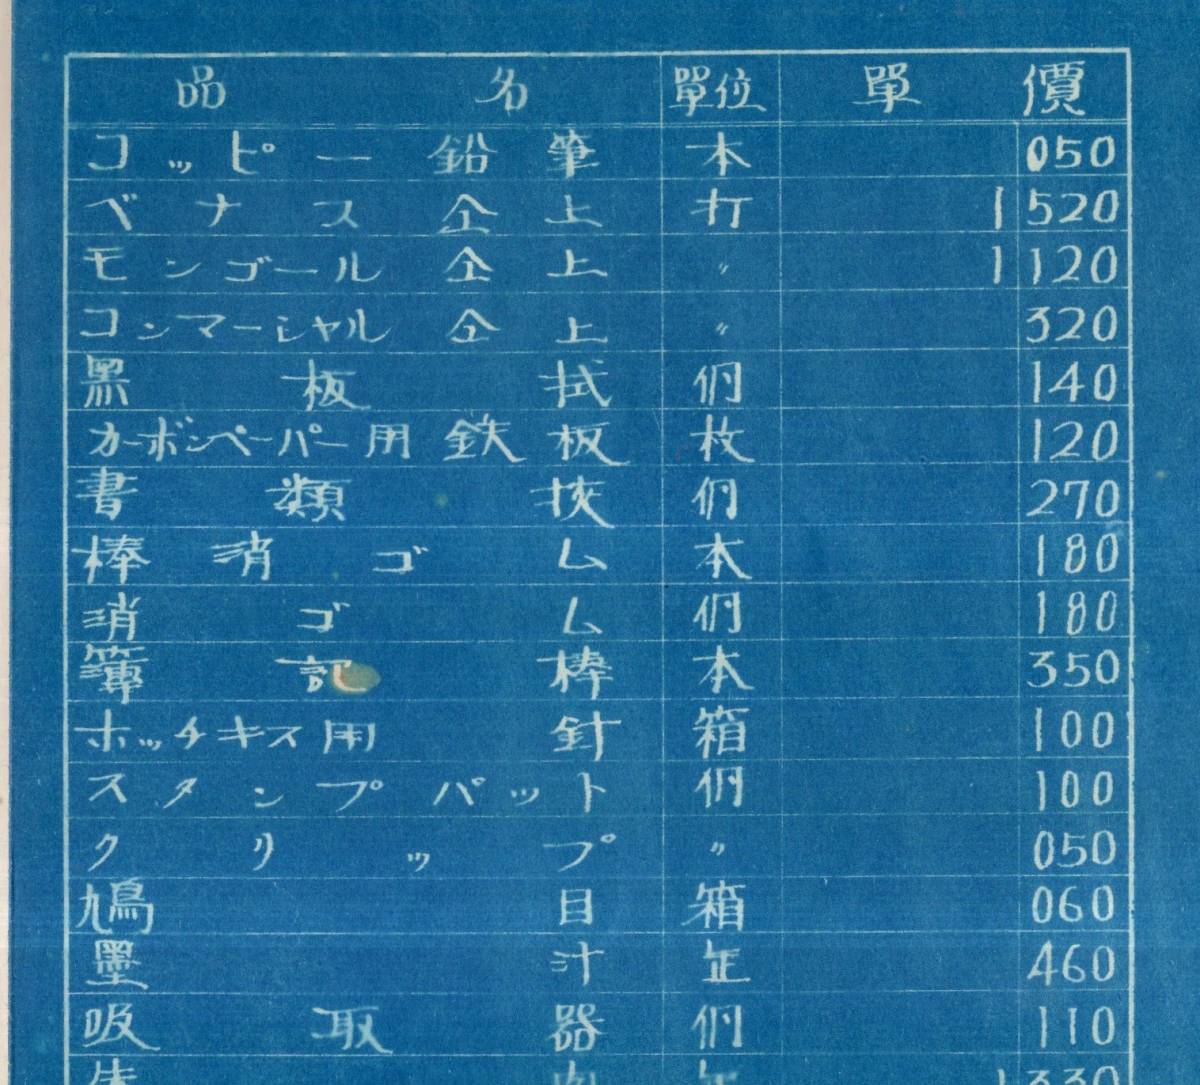 品名 單位 單價
コッピー鉛筆 本 050
ベナス仝上 打 1 520
モンゴール仝上 〃 1 120
コンマーシャル仝上 〃 320
黒板拭 個 140
カーボンペーパー用鉄板 枚 120
書類挾 個 270
棒消ゴム 本 180
消ゴム 個 180
簿記棒 本 350
ホッチキス用針 箱 100
スタンプパット 個 100
クリップ 〃 050
鳩目 箱 060
墨汁 缶 460
吸取器 個 110
朱肉 1 330